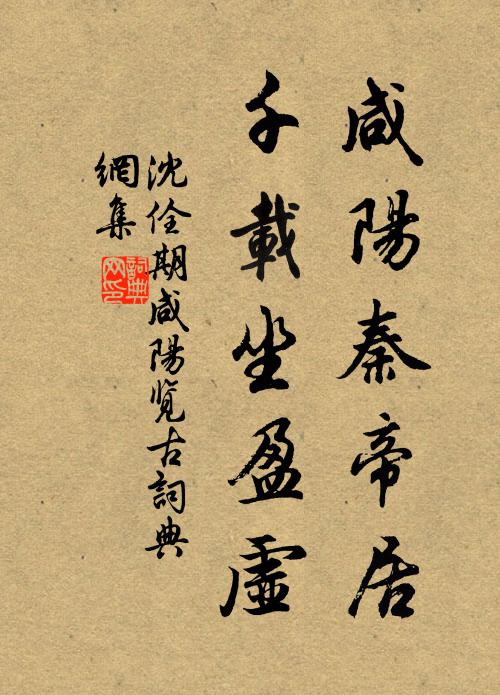 咸陽秦帝居
千載坐盈虛
沈佺期咸陽覽古詞典
網集
詞典網印